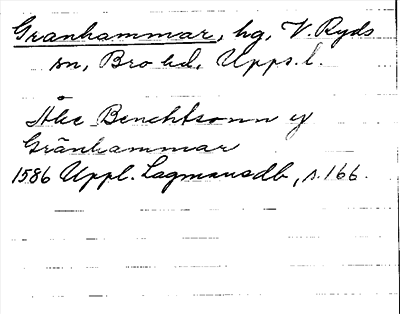 Granhammar, hg, V. Ryds
sn, Bro hd, Upps. l.
Åke Benchtsonn y
Gränhammar
1586 Uppl. Lagmansdb, s. 166.